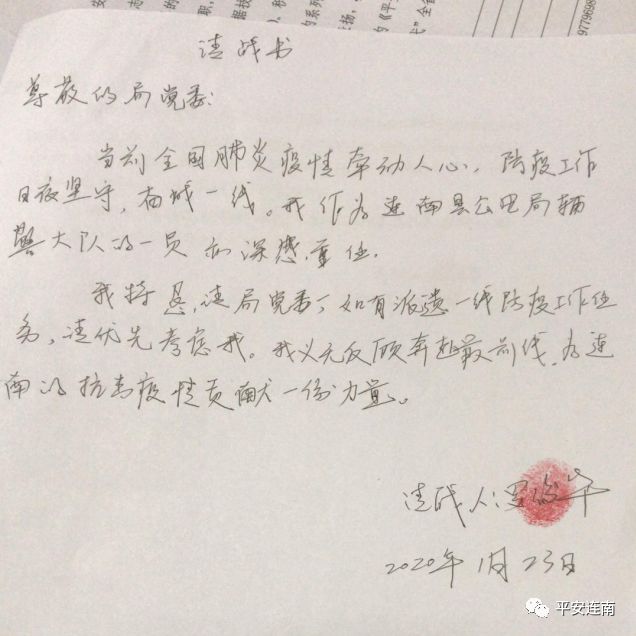 请战书
尊敬的局党委:
当前全国肺炎疫情牵动人心，防疫工作
日夜坚守，在一线。我作为连南县公安局辅
警大队的一员 深感重任.
我特恳请局党委，如有派遣一线防疫工作任
务，请优先考虑我。我义无反顾奔赴最前线，为连
南的抗击疫情贡献一份力量。
请战人:罗
2020年1月23日
平安连南
9779698